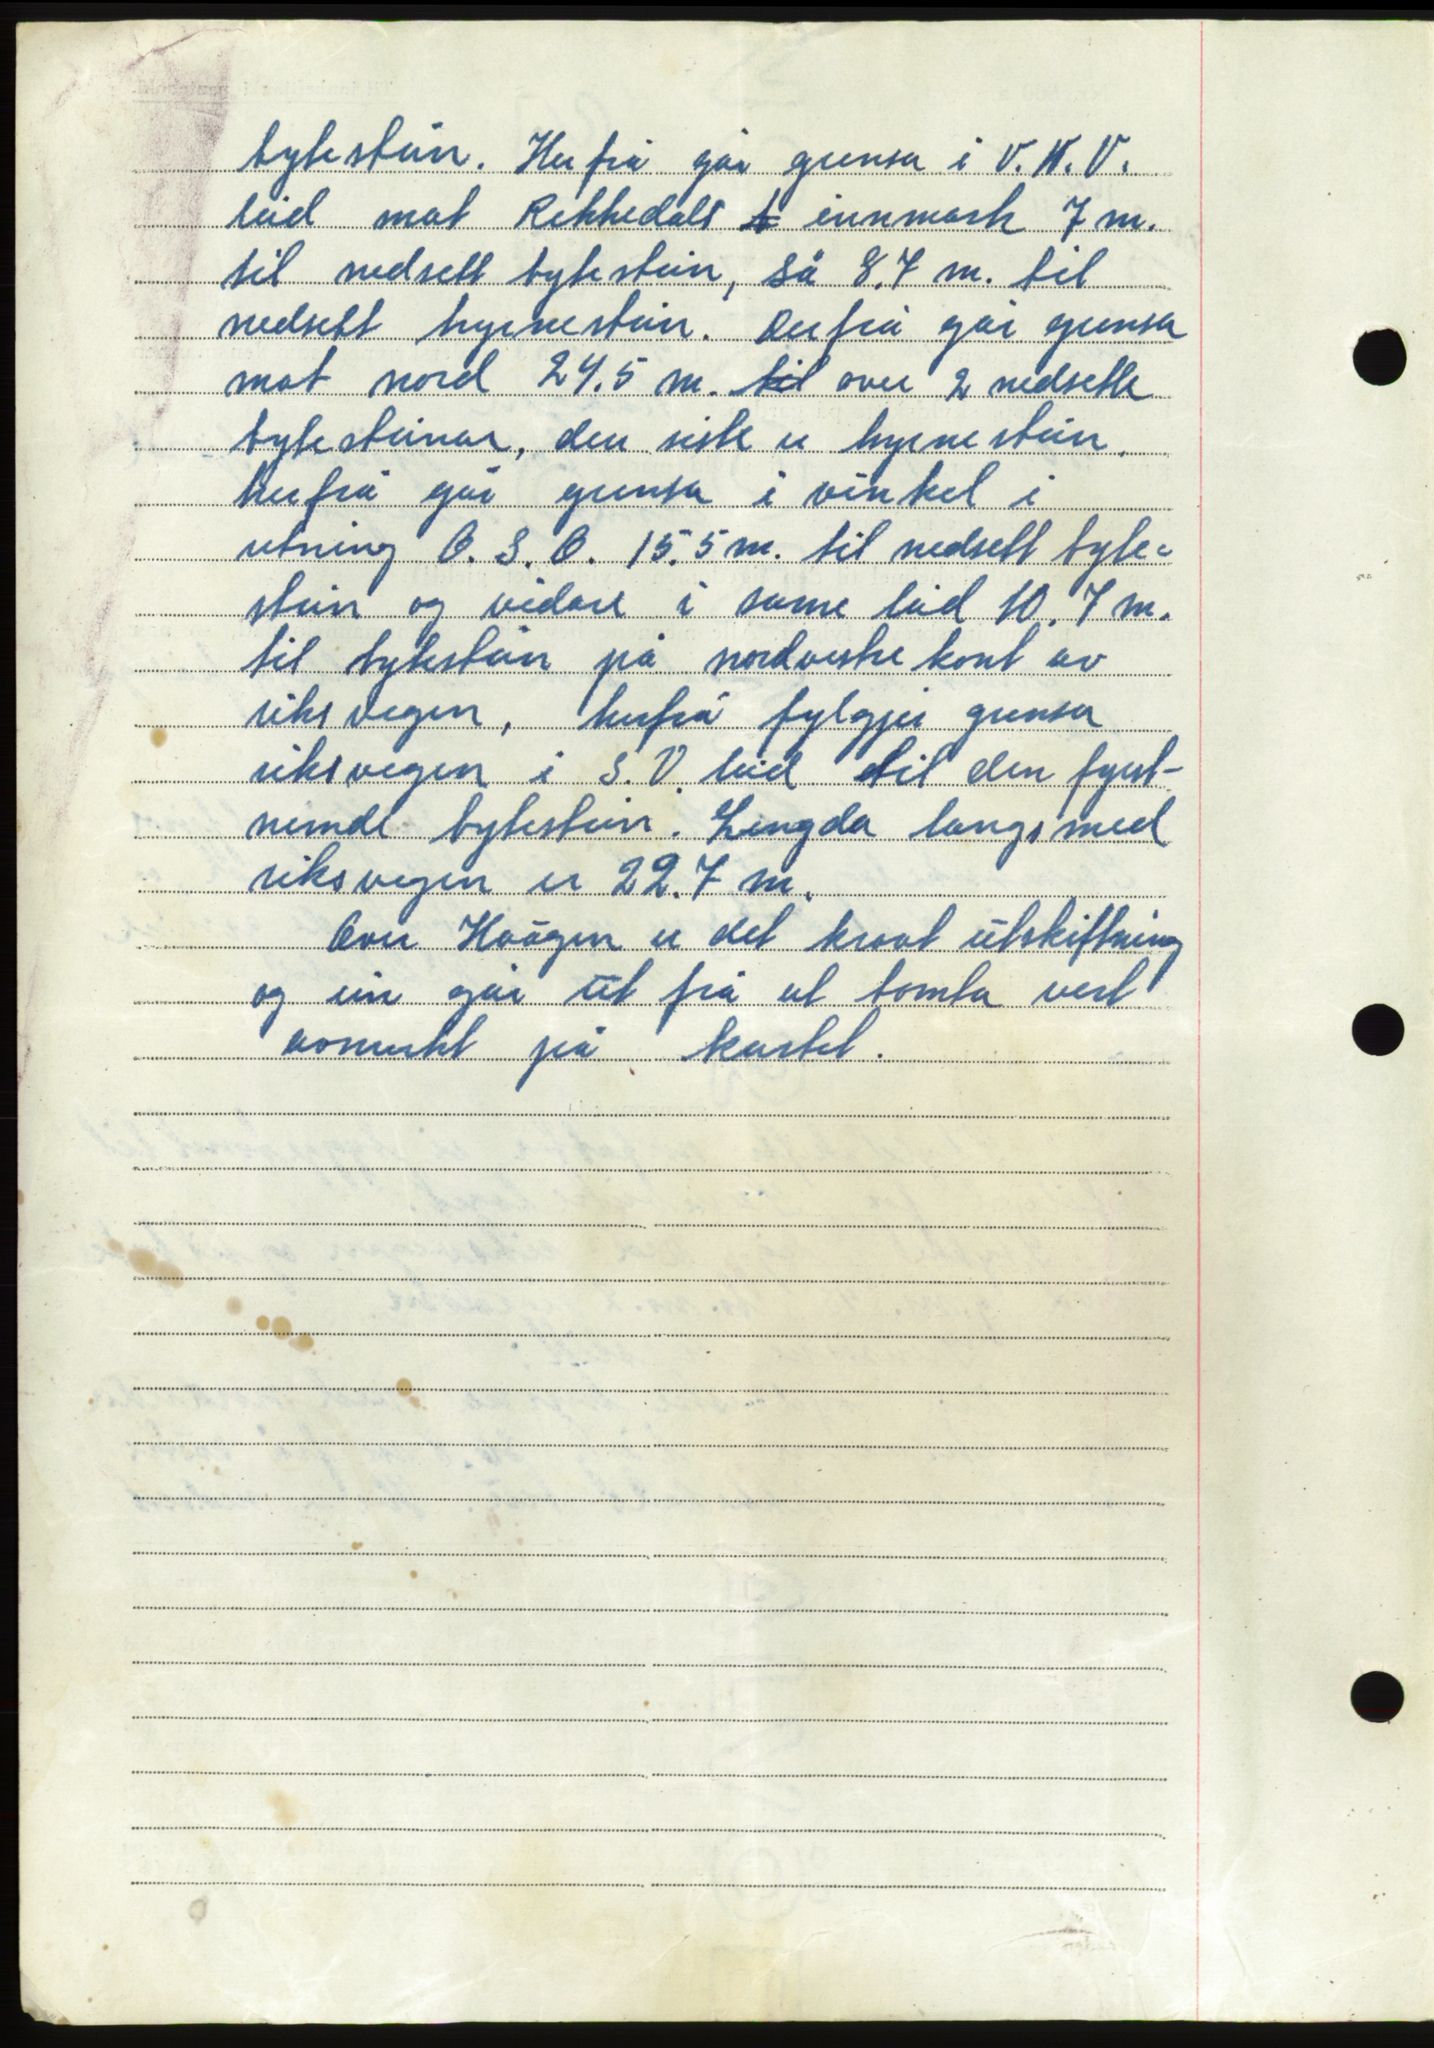 bytestein. Herfrå går grensa i V.N.V.
leid mot Rekkedals innmark 7 m.
til nedsett bytestein, så 8.7 m. til
nedsett hyrnestein. Derfrå går grensa
mot nord 24.5 m. til over 2 nedsette
bytesteinar, den siste er hyrnestein.
Herfrå går grensa i vinkel i
retning O.S.O. 15.5 m. til nedsett byte=
stein og vidare i same leid 10.7 m.
til bytestein på nordvestre kant av
riksvegen, herfrå fylgjer grensa
riksvegen i S.V. leid til den fyrst-
nemde bytestein. Lengda langsmed
riksvegen er 22.7 m.
Over Haågen er det kravt utskiftning
og ein går ut frå at tomta vert
avmerkt på kartet.